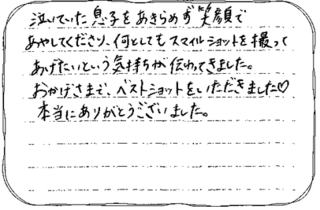 泣いていた息子をあきらめず笑顔で
あやしてくださり、何としてもスマイルショットを撮って
あげたいという気持ちが伝わってきました。
おかげさまで、ベストショットをいただきました♡
本当にありがとうございました。